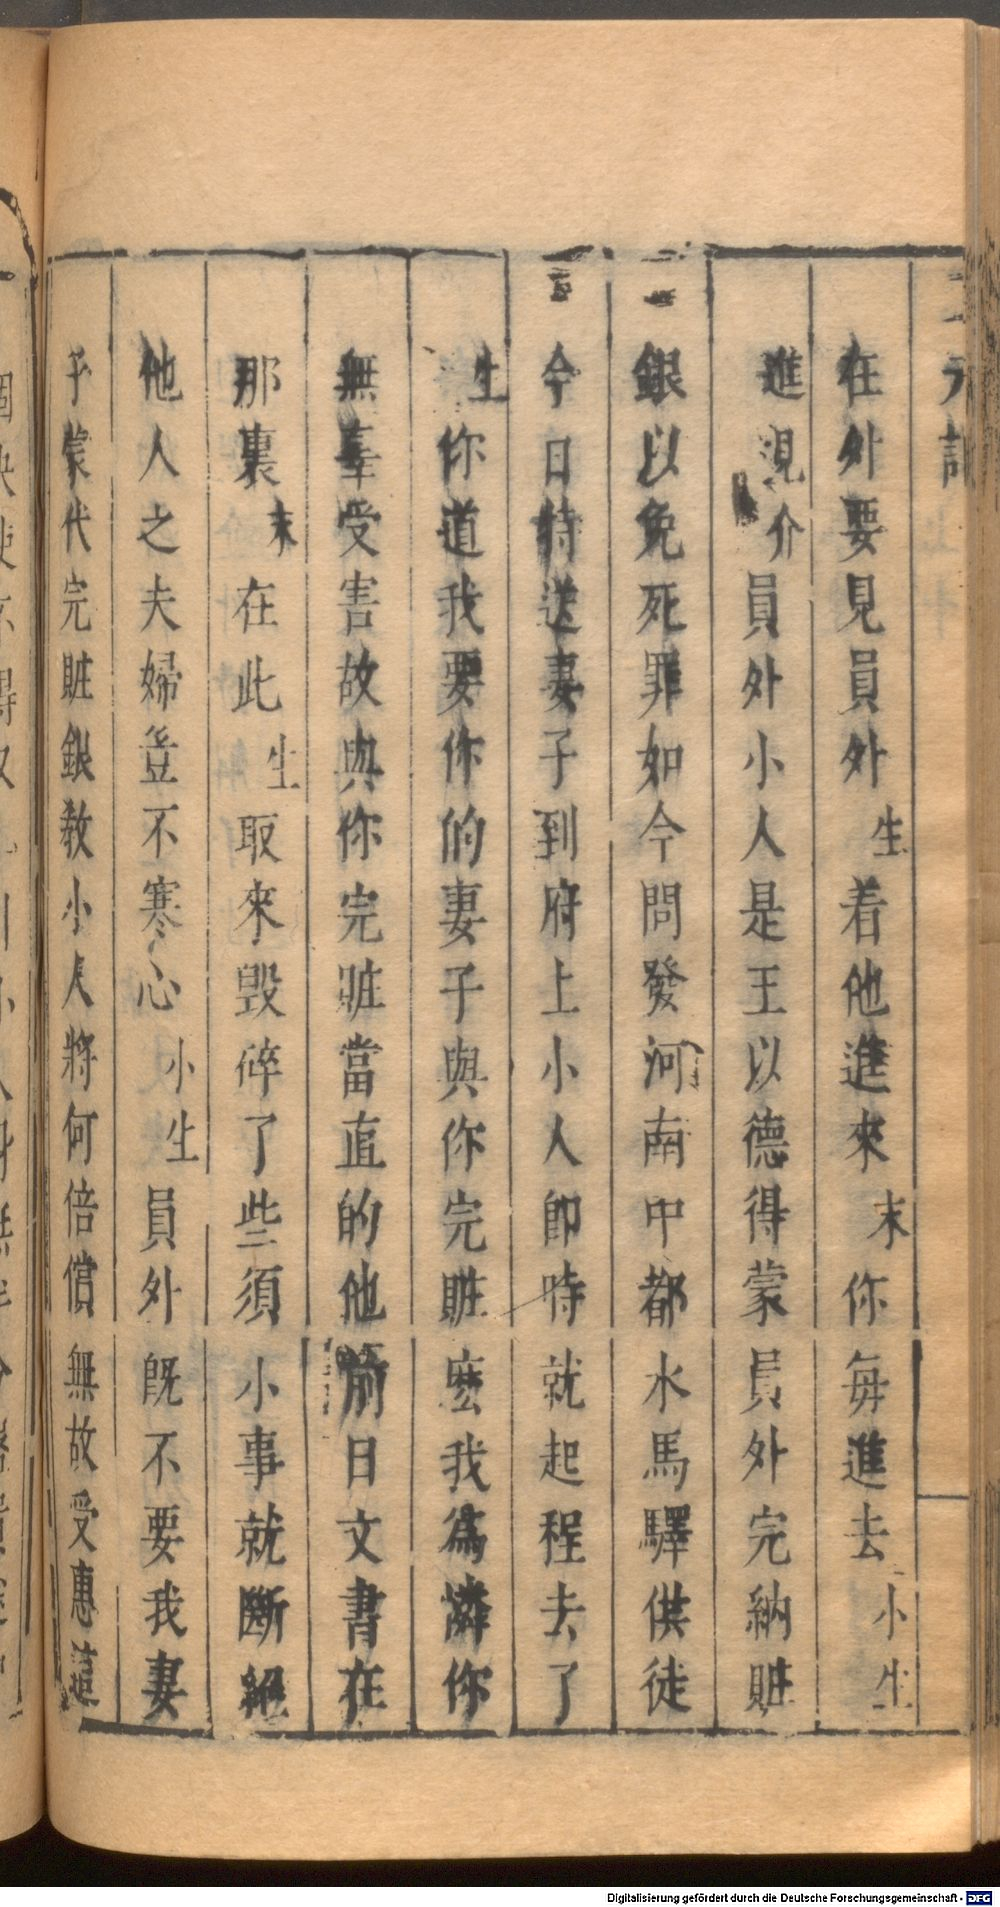 三元記
在外要見員外生着他進來末你每進去小生
進見介員外小人是王以德得蒙員外完納賍
銀以免死罪如今問發河南中都水馬驛供徒
今日特送妻子到府上小人卽時就起程去了
生你道我要你的妻子與你完賍麽我爲憐你
無辜受害故與你完賍當直的他前日文書在
那裏末在此生取來毁碎了些須小事就斷絕
他人之夫婦豈不寒心小生員外旣不要我妻
子蒙代完賍銀教小人將何倍償無故受惠這
Digitalisierung gefördert durch die Deutsche Forschungsgemeinschaft - DFG